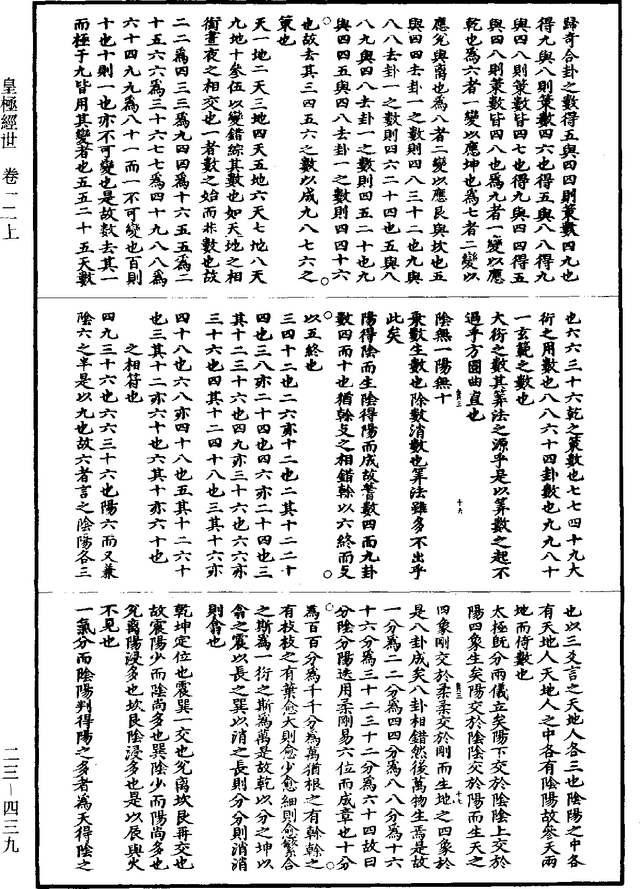 歸奇合卦之數得五與四四則策數四九也
得九與八八則策數四六也得五與八八得九
與四八則策數皆四七也得九與四四得五
與四八則策數皆四八也爲九者一變以應
乾也爲六者一變以應坤也爲七者二變以
應兌與離也爲八者二變以應艮與坎也五
與四四去卦一之數則四八三十二也九與
八八去卦一之數則四六二十四也五與八
八九與四八去卦一之數則四五二十也九
與四四五與四八去卦一之數則四四十六
也故去其三四五六之數以成九八七六之
策也
天一地二天三地四天五地六天七地八天
九地十參伍以變錯綜其數也如天地之相
銜晝夜之相交也一者數之始而非數也故
二二爲四三三爲九四四爲十六五五爲二
十五六六爲三十六七七爲四十九八八爲
六十四九九爲八十一而一不可變也百則
十也十則一也亦不可變也是故數去其一
而極于九皆用其變者也五五二十五天數
也六六三十六乾之策數也七七四十九大
衍之用數也八八六十四卦數也九九八十
一玄範之數也
大衍之數其筭法之源乎是以筭數之起不
過乎方圓曲直也
陰無一陽無十
乘數生數也除數消數也筭法雖多不出乎
此矣
陽得陰而生陰得陽而成故蓍數四而九卦
數四而十也猶幹支之相錯幹以六終而支
以五終也
三四十二也二六亦十二也二其十二二十
四也三八亦二十四也四六亦二十四也三
其十二三十六也四九亦三十六也六六亦
三十六也四其十二四十八也三其十六亦
四十八也六八亦四十八也五其十二六十
也三其十二亦六十也六其十亦六十也
之相符也
四九三十六也六六三十六也陽六而又兼
陰六之半是以九也故六者言之陰陽各三
也以三爻言之天地人各三也陰陽之中各
有天地人天地人之中各有陰陽故參天兩
地而倚數也
太極既分兩儀立矣陽下交於陰陰上交於
陽四象生矣陽交於陰陰交於陽而生天之
四象剛交於柔柔交於剛而生地之四象於
是八卦成矣八卦相錯然後萬物生焉是故
一分爲二二分爲四四分爲八八分爲十六
十六分爲三十二三十二分爲六十四故曰
分陰分陽迭用柔剛易六位而成章也十分
爲百百分爲千千分爲萬猶根之有幹幹之
有枝枝之有葉愈大則愈少愈細則愈繁合
之斯爲一衍之斯爲萬是故乾以分之坤以
翕之震以長之巽以消之長則分分則消消
則翕也
乾坤定位也震巽一交也兌離坎艮再交也
故震陽少而陰尚多也巽陰少而陽尚多也
兌離陽浸多也坎艮陰浸多也是以辰與火
不見也
一氣分而陰陽判得陽之多者爲天得陰之
皇極經世 卷一二上
二三—四三九